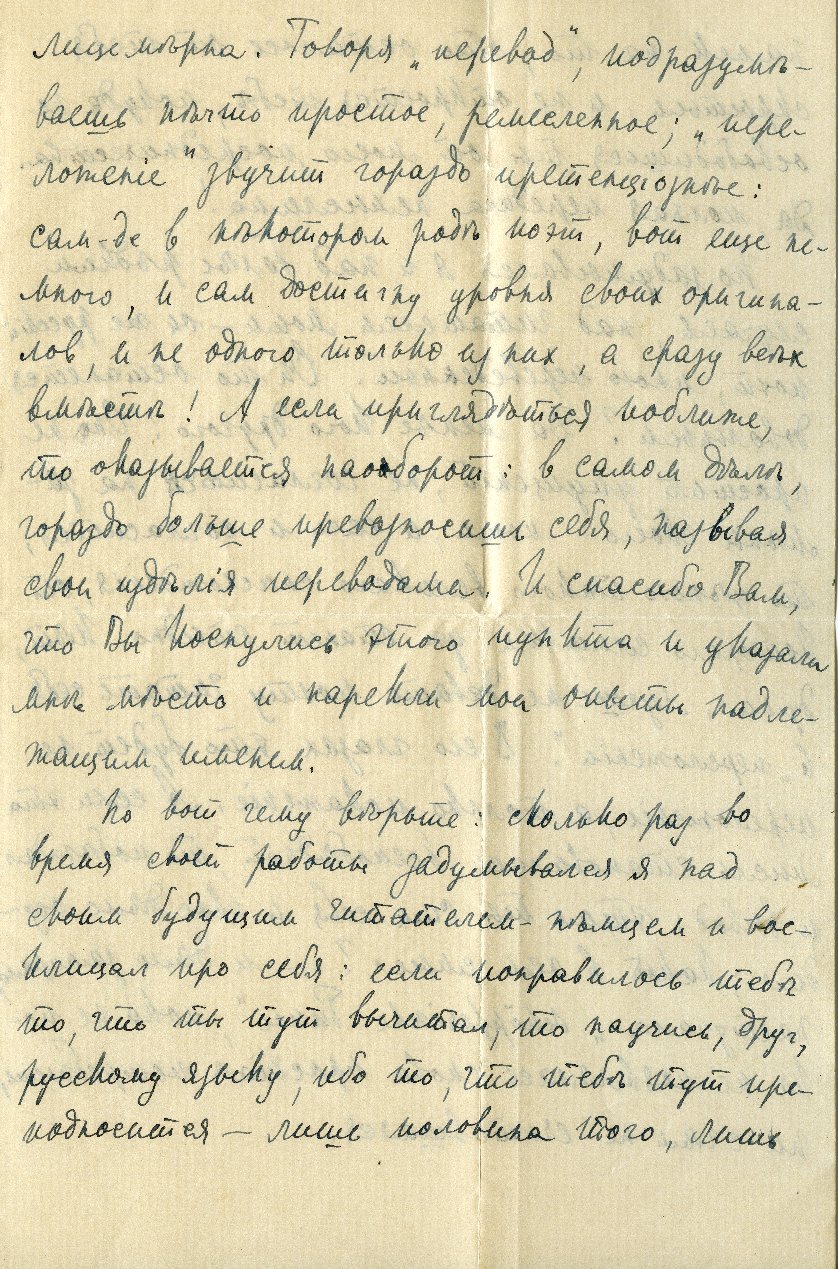 лицемѣрна. Говоря „перевод“, подразумѣ-
ваешь нѣчто простое, ремесленное; „пере-
ложеніе“ звучит гораздо претенціознѣе:
сам-де в нѣкотором родѣ поэт, вот еще не-
много, и сам достигну уровня своих оригина-
лов, и не одного только из них, а сразу всѣх
вмѣстѣ! А если приглядѣться поближе,
то оказывается наоборот: в самом дѣлѣ,
гораздо больше превозносишь себя, называя
свои издѣлія переводами. И спасибо Вам,
что Вы коснулись этого пункта и указали
мнѣ мѣсто и нарекли мои опыты надле-
жащим именем.
Но вот чему вѣрьте: сколько раз во
время своей работы задумывался я над
своим будущим читателем-нѣмцем и вос-
клицал про себя: если понравилось тебѣ
то, что ты тут вычитал, то научись, друг,
русскому языку, ибо то, что тебѣ тут пре-
подносится — лишь половина того, лишь